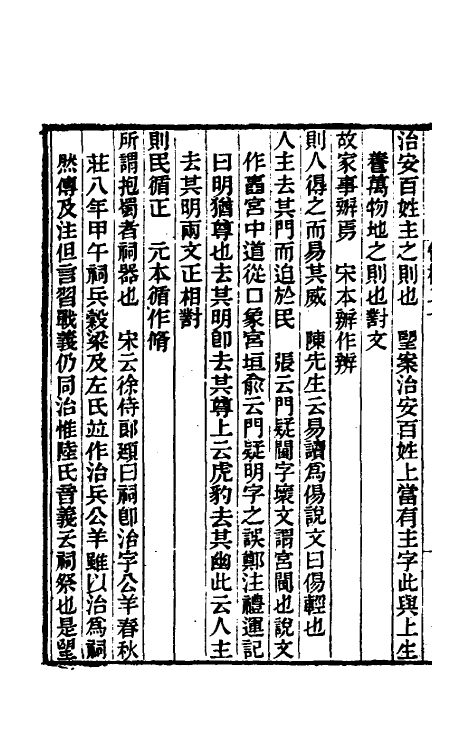 治安百姓主之則也　朢案治安百姓上當有主字此與上生
養萬物地之則也對文
故家事辦焉　宋本辦作辨
則人得之而易其威　陳先生云易讀爲傷說文曰傷輕也
人主去其門而迫於民　張云門疑閶字壞文謂宮閶也說文
作𡈼宮中道從口象宮垣兪云門疑明字之誤鄭注禮運記
曰明猶尊也去其明卽去其尊上云虎豹去其幽此云人主
去其明兩文正相對
則民循正　元本循作脩
所謂抱蜀者祠器也　宋云徐侍郞頲曰祠卽治字公羊春秋
莊八年甲午祠兵穀梁及左氏竝作治兵公羊雖以治爲祠
然傳及注但言習戰義仍同治惟陸氏音義云祠祭也是朢